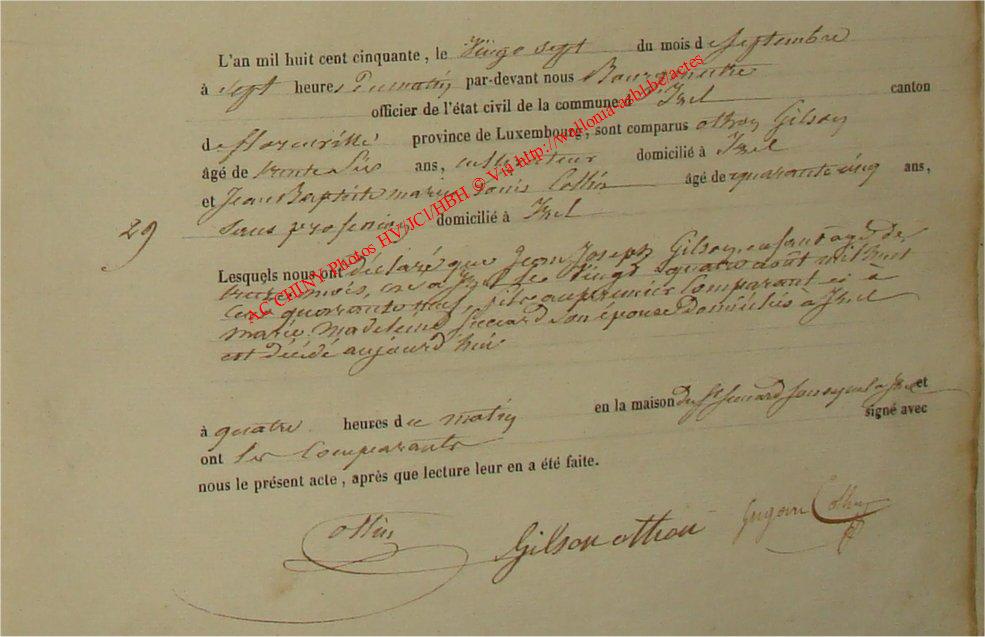 L'an mil huit cent cinquante, le Vingt sept du mois de Septembre
à sept heures Du matin par-devant nous Bourgmestre
officier de l'état civil de la commune d'Izel canton
de florenville province de Luxembourg, sont comparus othon Gilson
âgé de trente six ans, cultivateur domicilié à Izel
et Jean Baptiste marie Louis Collin âgé de quarante cinq ans,
29
sans profession domicilié à Izel
Lesquels nous ont déclaré que Jean Joseph Gilson, enfant agé de
treize mois, né à Izel le Vingt quatre août mil huit
cent quarante neuf, fils du premier Comparant et de
marie Madeleine son épouse Domiciliés a Izel
est décédé aujourd'hui
à quatre heures du matin en la maison du Sr sise à Izel et
ont les Comparants signé avec
nous le présent acte, après que lecture leur en a été faite.
Collin Gilson othon Collin
AC CHINY Photos HV/JCl/HBH © Via http://wallonia-asbl.be/actes